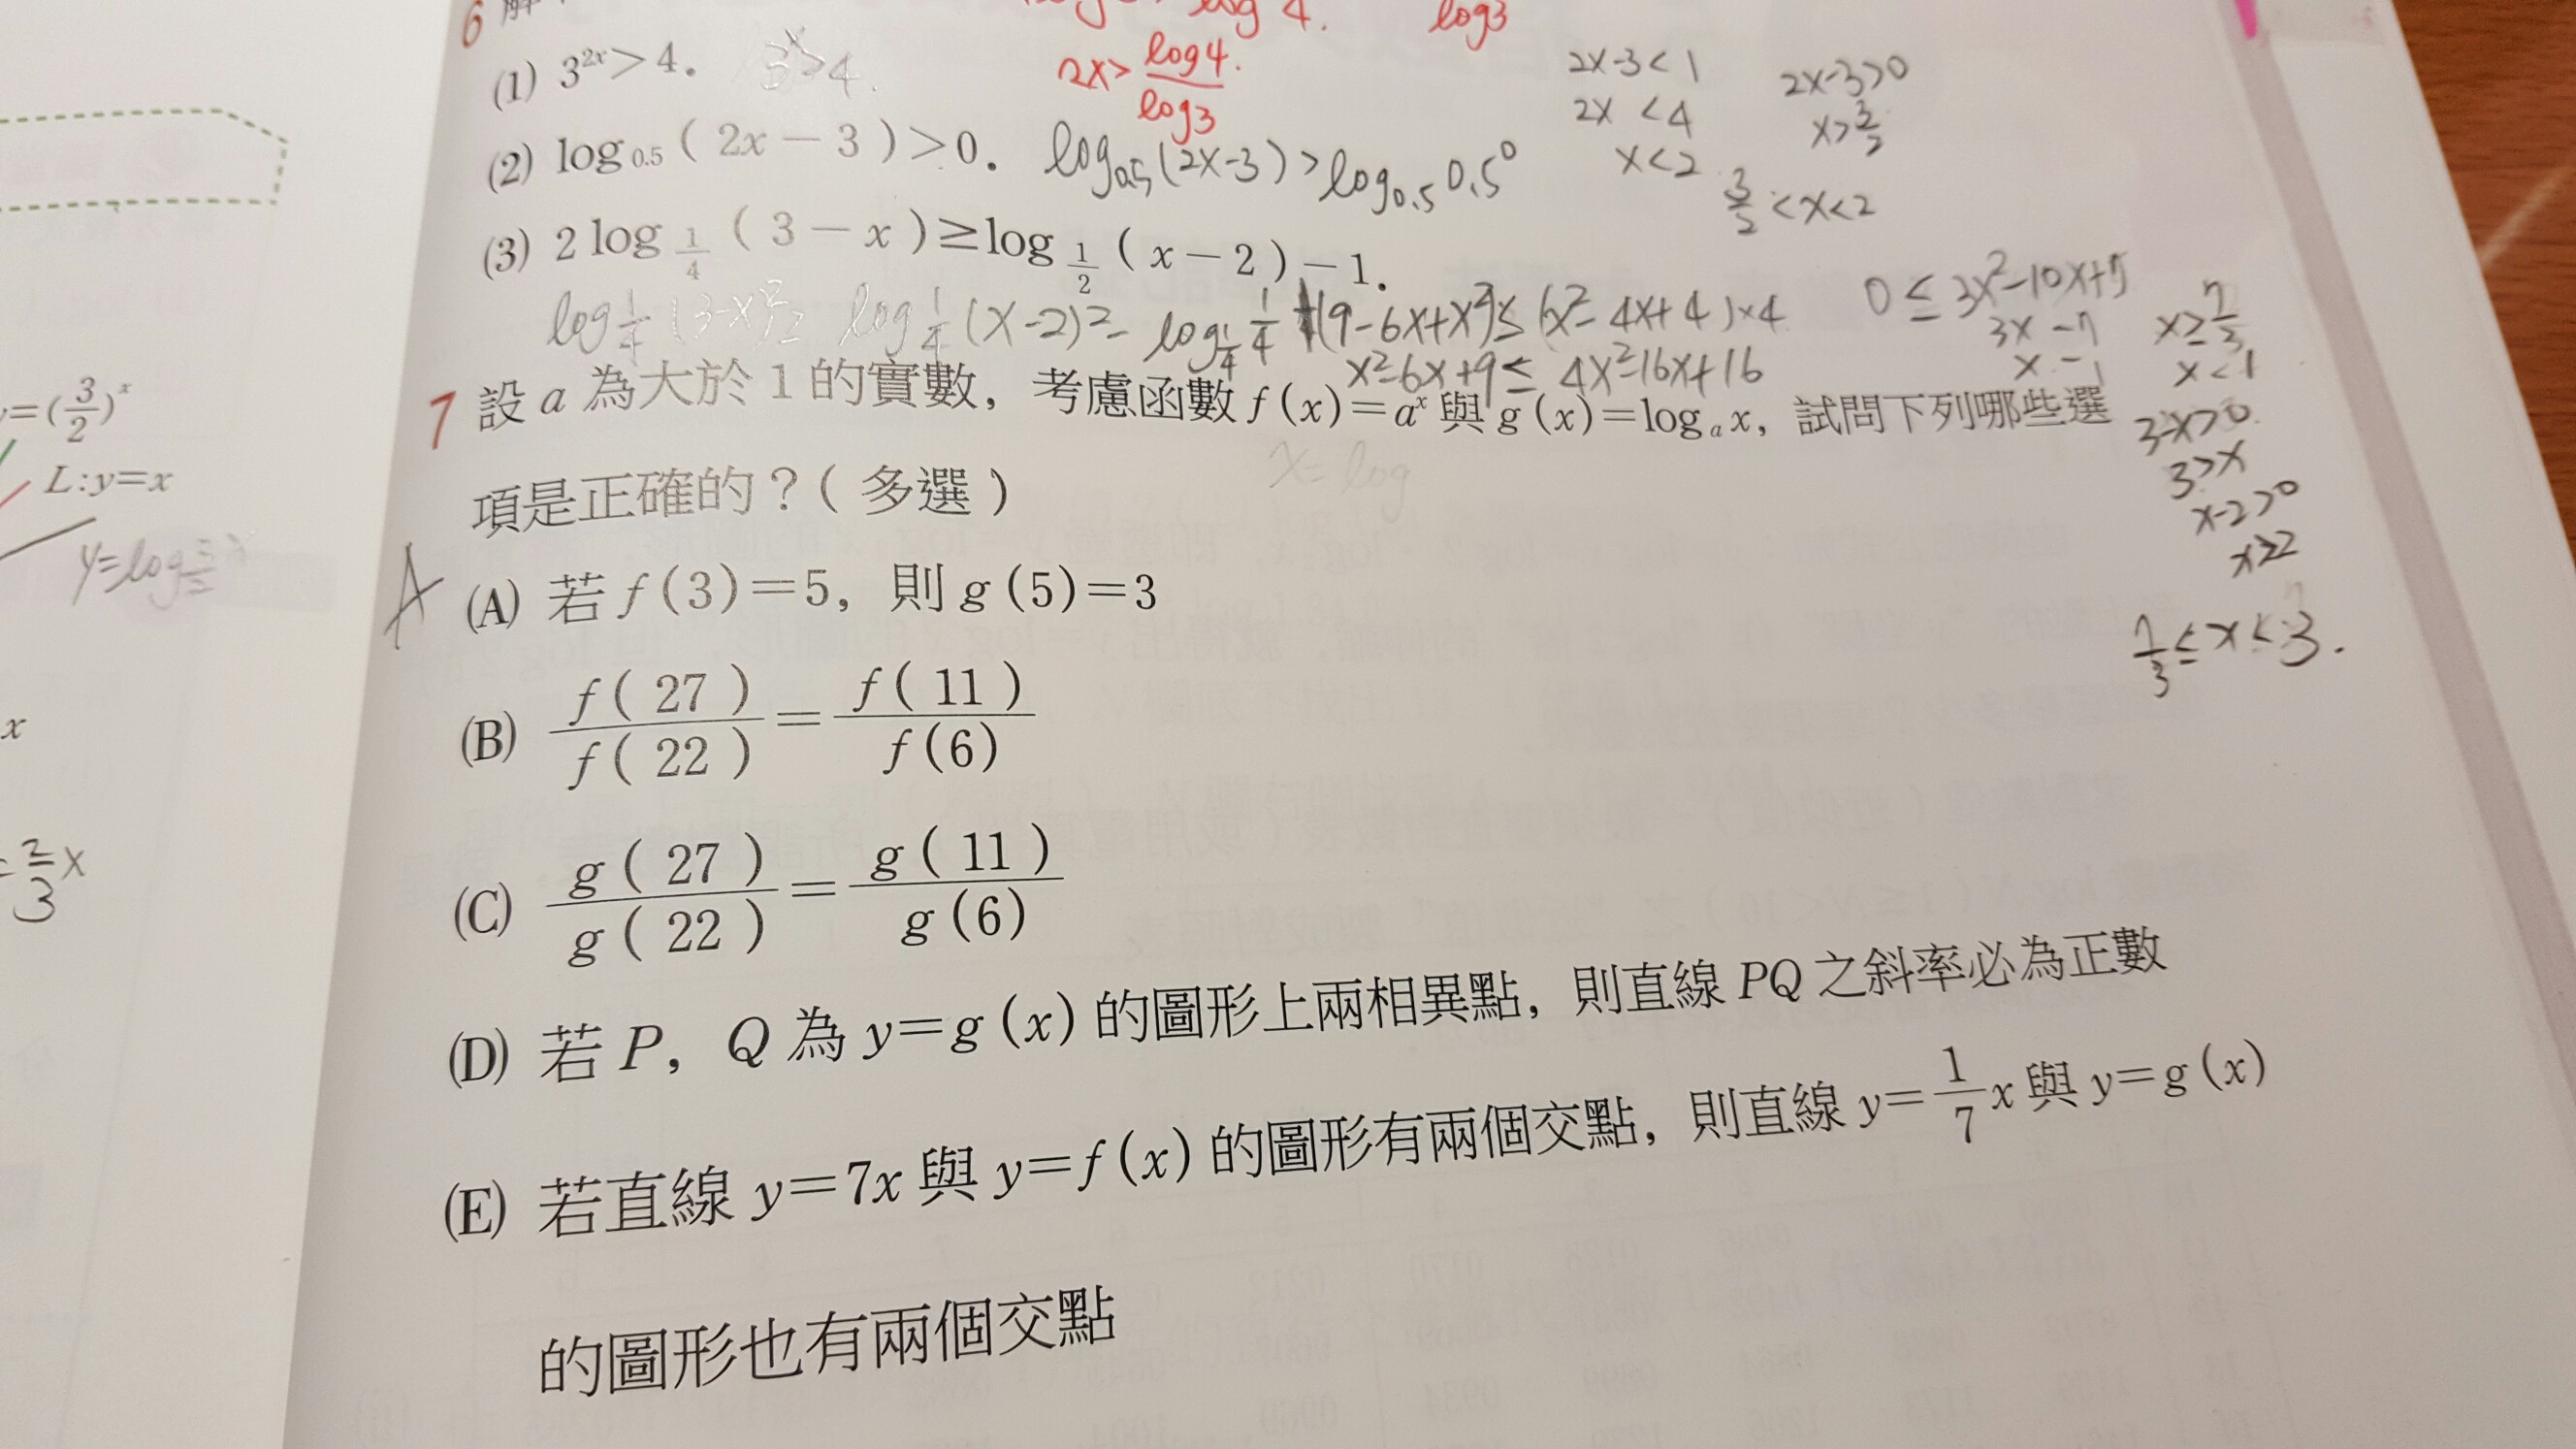 6 解
log 4. log3
(1) 3^{2x}>4. 3^x>4.
2x> log4. / log3
2x-3<1
2x <4
x<2
2x-3>0
x>3/2
3/2<x<2
(2) log_{0.5}(2x-3)>0. log_{0.5}(2x-3)>log_{0.5}0.5^0
(3) 2log_{1/4}(3-x)≥log_{1/2}(x-2)-1.
log_{1/4}(3-x)^2≥ log_{1/4}(x-2)^2- log_{1/4} 1/4
(9-6x+x^2)≤(x^2-4x+4)×4
x^2-6x+9≤ 4x^2-16x+16
0≤3x^2-10x+7
3x -7
x -1
x≥7/3
x<1
3-x>0.
3>x
x-2>0
x≥2
7/3≤x<3.
7 設 a 為大於 1 的實數，考慮函數 f(x)=a^x 與 g(x)=log_a x，試問下列哪些選
項是正確的？(多選)
x=log
A
(A) 若 f(3)=5，則 g(5)=3
(B) f(27)/f(22)=f(11)/f(6)
(C) g(27)/g(22)=g(11)/g(6)
(D) 若 P，Q 為 y=g(x) 的圖形上兩相異點，則直線 PQ 之斜率必為正數
(E) 若直線 y=7x 與 y=f(x) 的圖形有兩個交點，則直線 y=1/7 x 與 y=g(x)
的圖形也有兩個交點
=(3/2)^x
L:y=x
y=log_{3/2}x
x
=2/3 x